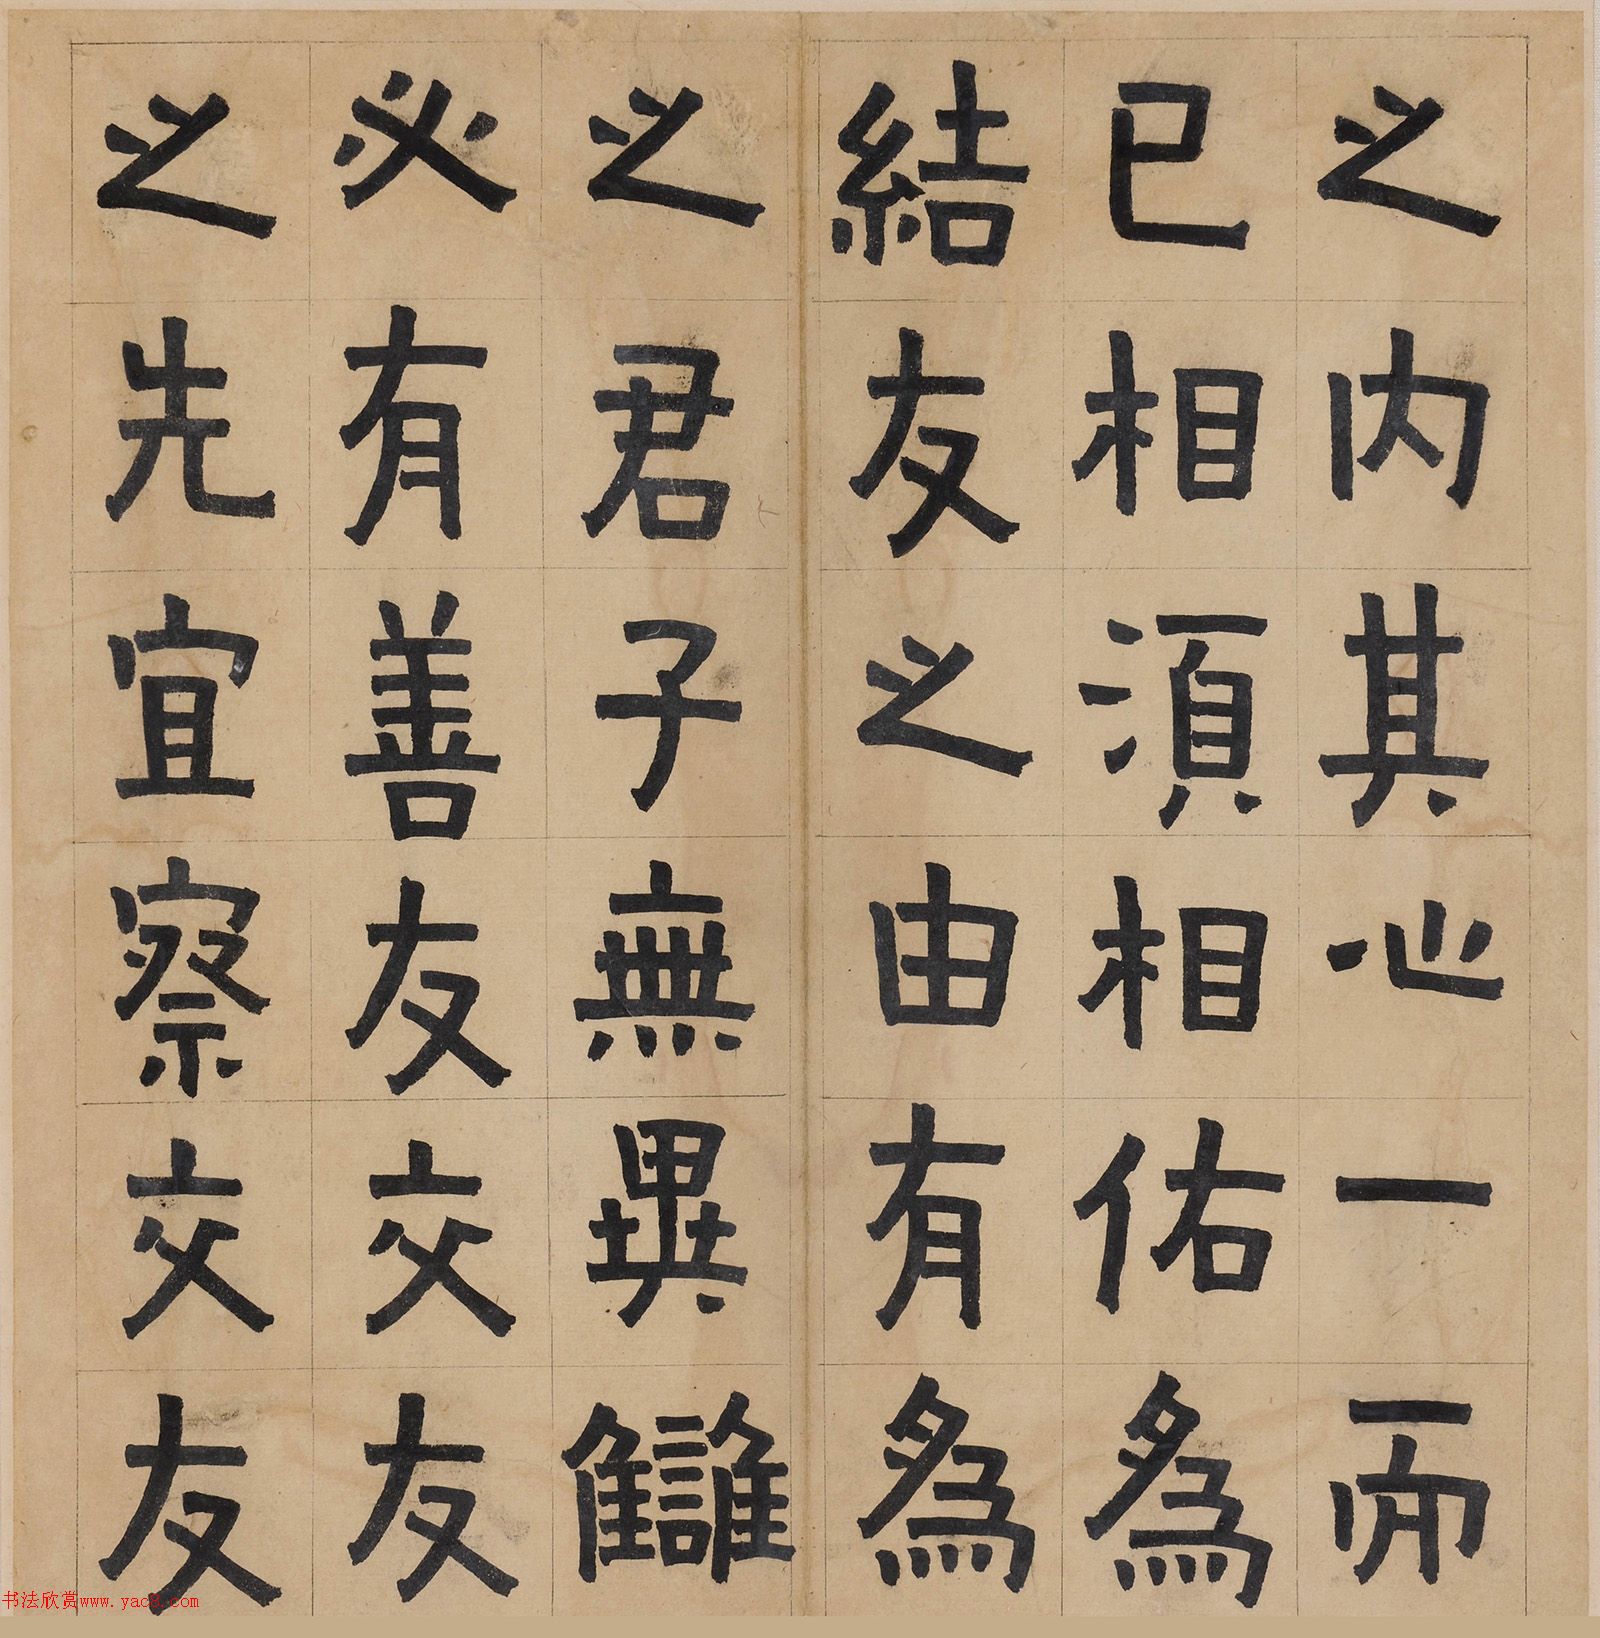 之内其心一而
已相須相佑為
結友之由有為
之君子無異讎
必有善友交友
之先宜察交友
书法欣赏www.yac8.com